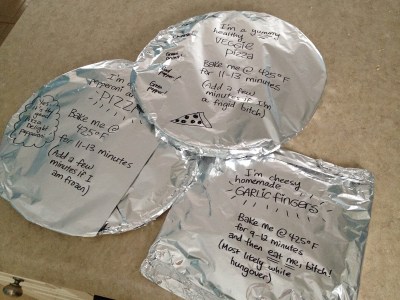 I'm a yummy
healthy
VEGGIE
pizza
Bake me @ 425°F
for 11-13 minutes
(Add a few
minutes if I'm
a frigid bitch)
I'm a
pepperoni
PIZZA
Bake me @
425°F
for 11-13 minutes
(Add 2 few
minutes if I
am frozen)
I'm cheesy
homemade
GARLIC FINGERS
Bake me @ 425°F
for 9-12 minutes
and then eat me, bitch!
(Most likely while
hungover)